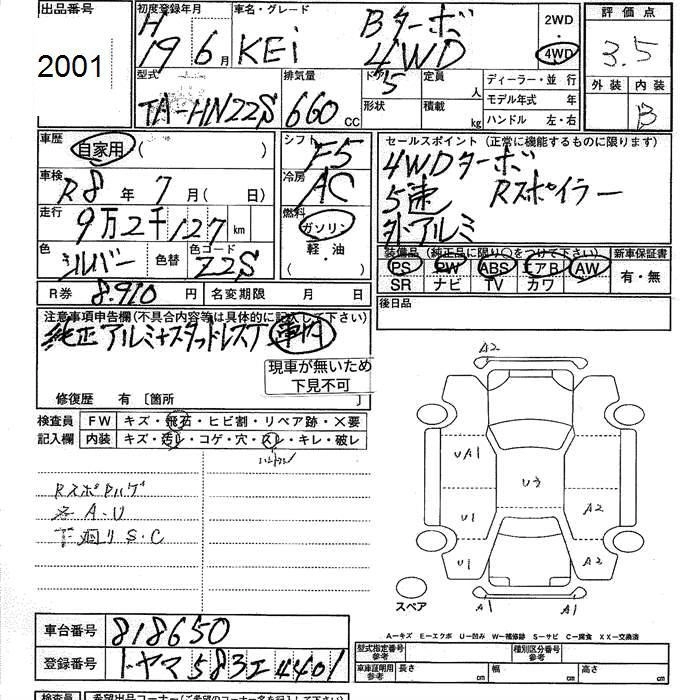 出品番号
2001
初度登録年月
H
19 6月
車名・グレード
KEi
Bターボ
4WD
2WD
4WD
評価点
3.5
外装 内装
B
型式
TA-HN22S
排気量
660 cc
ドア
5
形状
定員
人
積載
kg
ディーラー・並 行
モデル年式 年
ハンドル 左・右
車歴
自家用 ( )
車検
R8年 7月( 日)
走行
9万2千127km
色
シルバー
色替
色コード
Z2S
R券 8.910 円
名変期限 月 日
シフト
F5
冷房
AC
燃料
ガソリン
軽・油
( )
セールスポイント (正常に機能するものに限ります)
4WDターボ
5速 Rスポイラー
外アルミ
装備品 (純正品に限り○をつけて下さい)
新車保証書
PS PW ABS エアB AW
SR ナビ TV カワ
有・無
後日品
注意事項申告欄(不具合内容等は具体的に記入して下さい)
純正アルミ+スタッドレスT 車内
現車が無いため
下見不可
修復歴 有 〔箇所 〕
検査員
記入欄
FW キズ・飛石・ヒビ割・リペア跡・×要
内装 キズ・汚レ・コゲ・穴・スレ・キレ・破レ
RスポDハゲ
各A・U
下廻りS・C
A2
UA1
U1
U1
Uう
A2
A2
A1
A1
スペア
A−キズ E−エクボ U−凹み W−補修跡 S−サビ C−腐食 XX−交換済
車台番号 818650
登録番号 トヤマ583エ4401
型式指定番号
参考
種別区分番号
参考
車庫証明用
参考
長さ cm 幅 cm 高さ cm
検査員
希望出品コーナー(ご希望のコーナー名を記入して下さい)